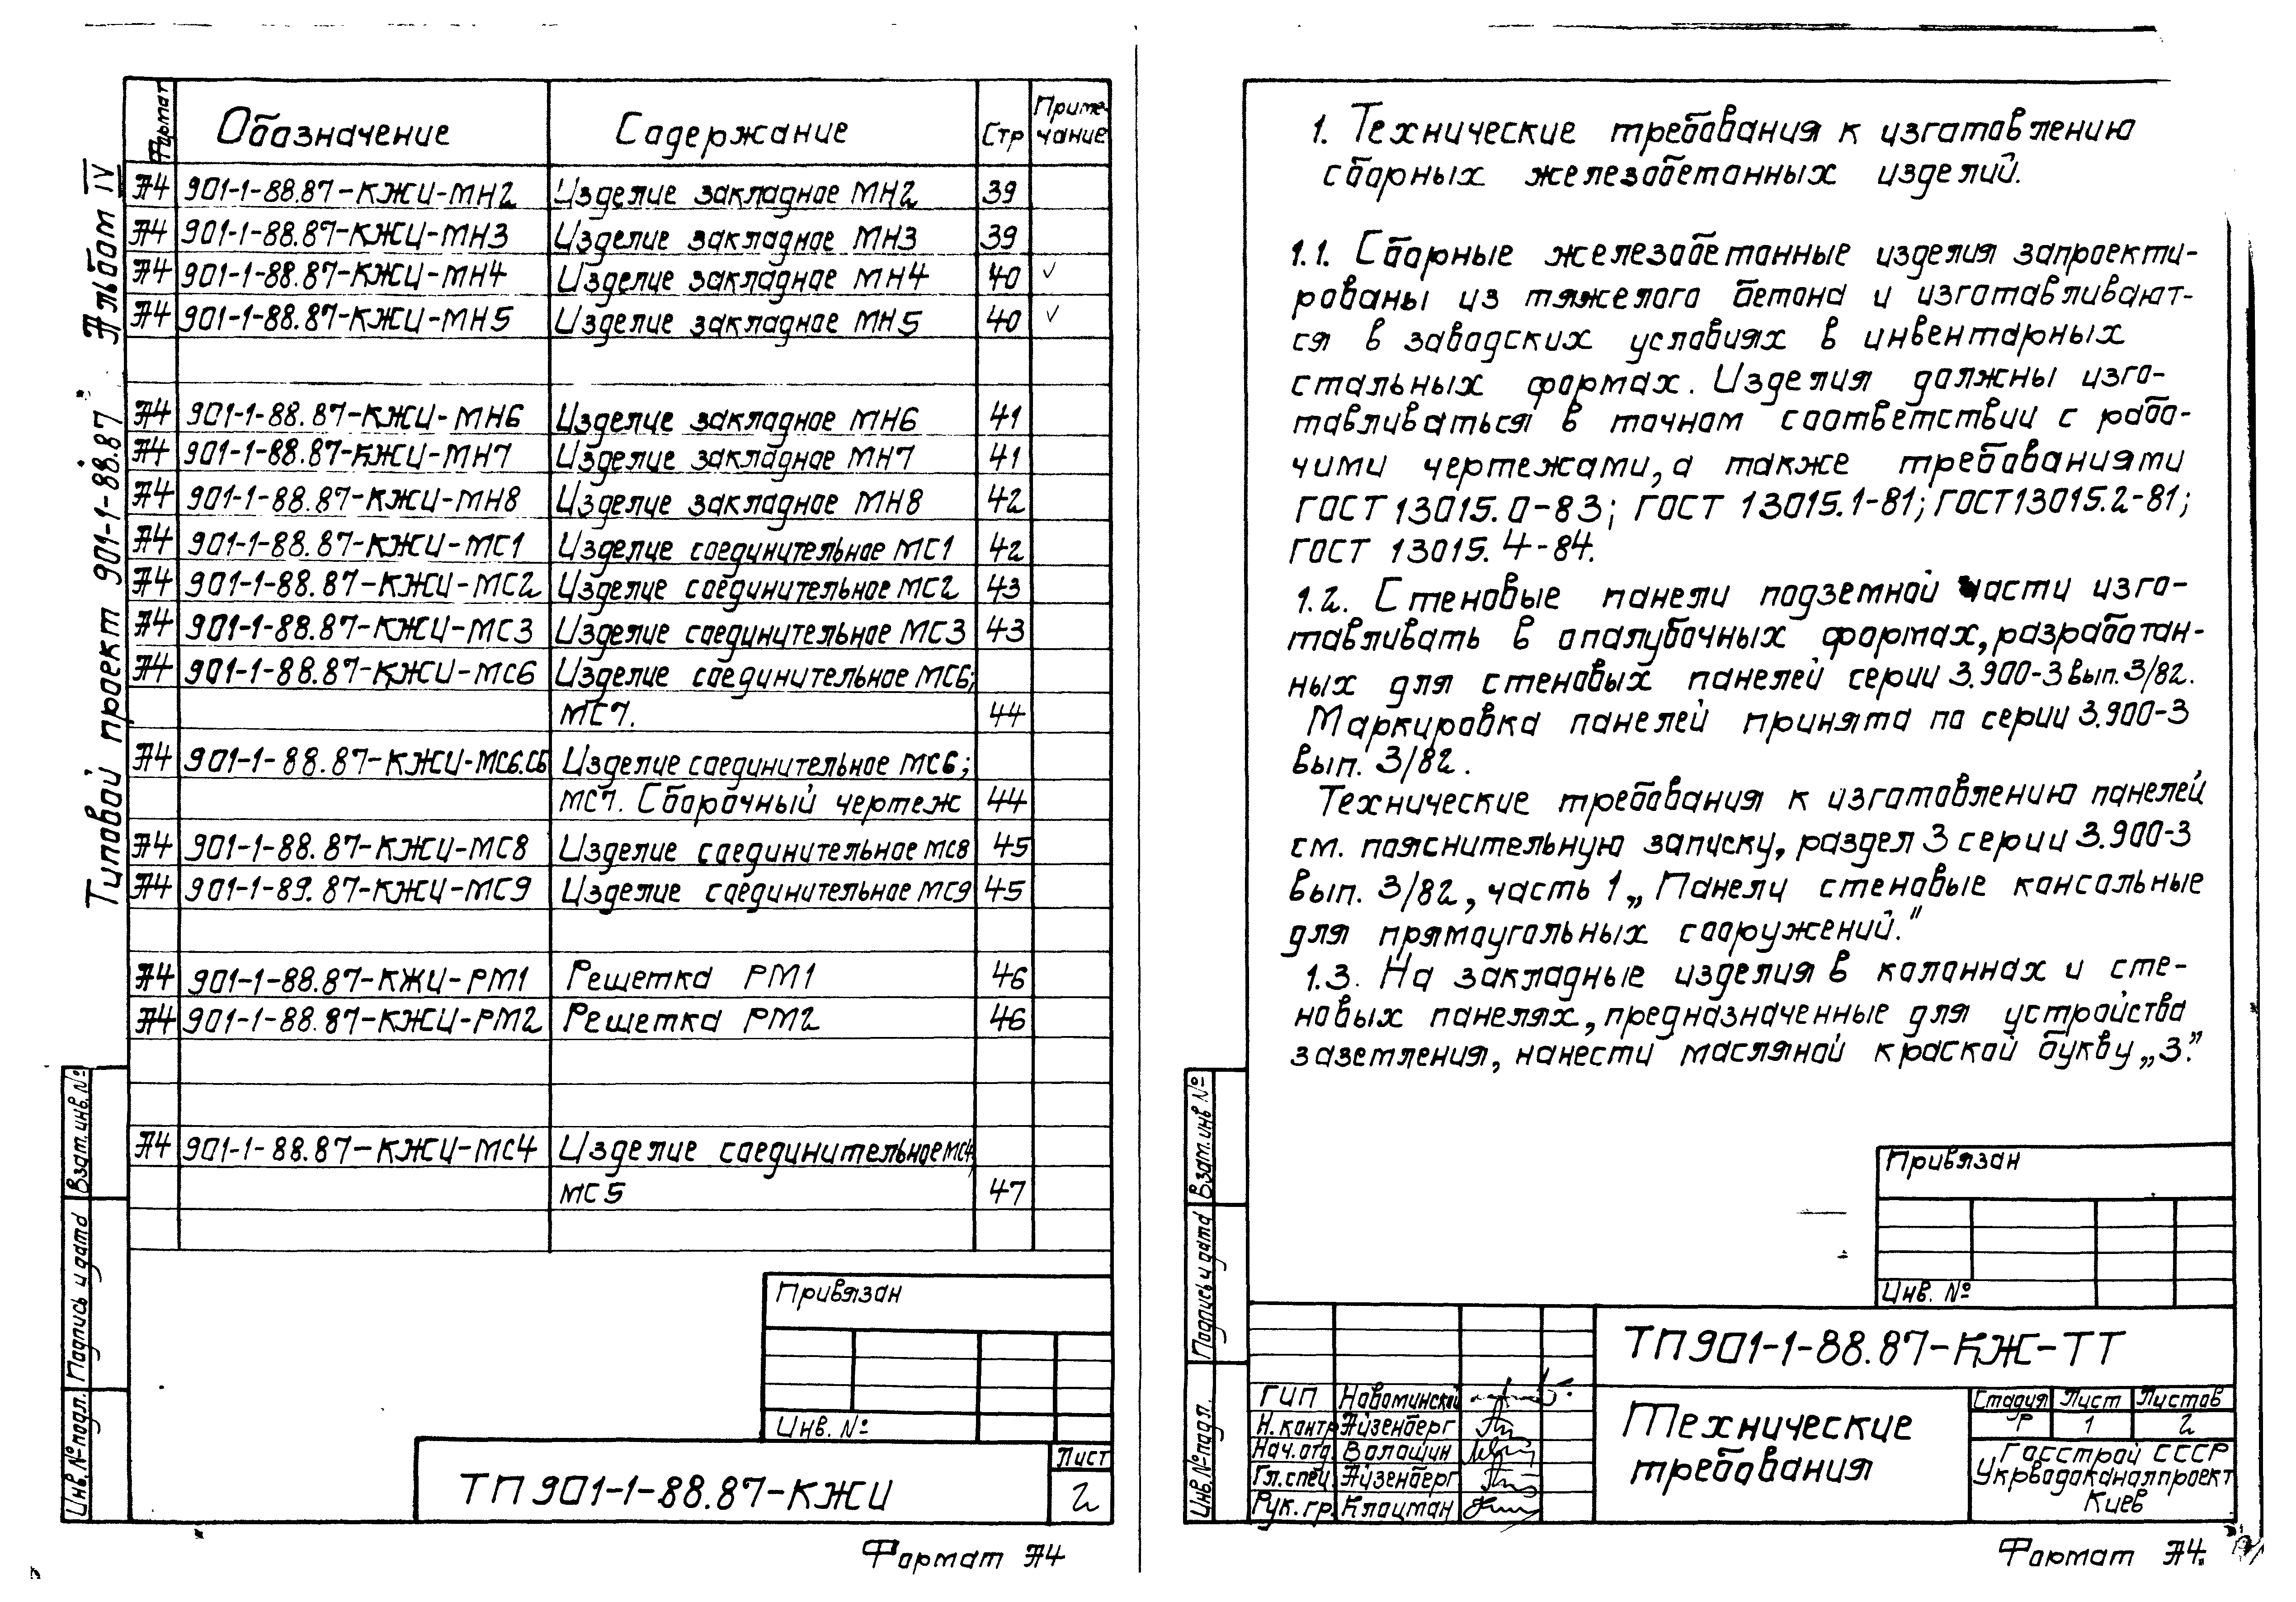 Типовой проект 901-1-88.87 Альбом IV
Формат Обозначение Содержание Стр Приме-
чание
А4 901-1-88.87-КЖИ-МН2 Изделие закладное МН2 39
А4 901-1-88.87-КЖИ-МН3 Изделие закладное МН3 39
А4 901-1-88.87-КЖИ-МН4 Изделие закладное МН4 40 ✓
А4 901-1-88.87-КЖИ-МН5 Изделие закладное МН5 40 ✓
А4 901-1-88.87-КЖИ-МН6 Изделие закладное МН6 41
А4 901-1-88.87-КЖИ-МН7 Изделие закладное МН7 41
А4 901-1-88.87-КЖИ-МН8 Изделие закладное МН8 42
А4 901-1-88.87-КЖИ-МС1 Изделие соединительное МС1 42
А4 901-1-88.87-КЖИ-МС2 Изделие соединительное МС2 43
А4 901-1-88.87-КЖИ-МС3 Изделие соединительное МС3 43
А4 901-1-88.87-КЖИ-МС6 Изделие соединительное МС6;
МС7. 44
А4 901-1-88.87-КЖИ-МС6.СБ Изделие соединительное МС6;
МС7. Сборочный чертеж 44
А4 901-1-88.87-КЖИ-МС8 Изделие соединительное МС8 45
А4 901-1-89.87-КЖИ-МС9 Изделие соединительное МС9 45
А4 901-1-88.87-КЖИ-РМ1 Решетка РМ1 46
А4 901-1-88.87-КЖИ-РМ2 Решетка РМ2 46
А4 901-1-88.87-КЖИ-МС4 Изделие соединительное МС4,
МС5 47
Взам. инв. №
Подпись и дата
Инв. № подл.
Привязан
Инв. №
ТП 901-1-88.87-КЖИ
Лист
2
Формат А4
1. Технические требования к изготовлению
сборных железобетонных изделий.
1.1. Сборные железобетонные изделия запроекти-
рованы из тяжелого бетона и изготавливают-
ся в заводских условиях в инвентарных
стальных формах. Изделия должны изго-
тавливаться в точном соответствии с рабо-
чими чертежами, а также требованиями
ГОСТ 13015.0-83; ГОСТ 13015.1-81; ГОСТ 13015.2-81;
ГОСТ 13015.4-84.
1.2. Стеновые панели подземной части изго-
тавливать в опалубочных формах, разработан-
ных для стеновых панелей серии 3.900-3 вып. 3/82.
Маркировка панелей принята по серии 3.900-3
вып. 3/82.
Технические требования к изготовлению панелей
см. пояснительную записку, раздел 3 серии 3.900-3
вып. 3/82, часть 1 „Панели стеновые консольные
для прямоугольных сооружений."
1.3. На закладные изделия в колоннах и сте-
новых панелях, предназначенные для устройства
заземления, нанести масляной краской букву „З."
Взам. инв №
Подпись и дата
Инв. № подл.
Привязан
Инв. №
ТП 901-1-88.87-КЖ-ТТ
ГИП Новоминский
Н. контр Айзенберг
Нач. отд. Волошин
Гл. спец. Айзенберг
Рук. гр. Клоцман
Технические
требования
Стадия Лист Листов
Р 1 2
Госстрой СССР
Укрводоканалпроект
Киев
Формат А4.